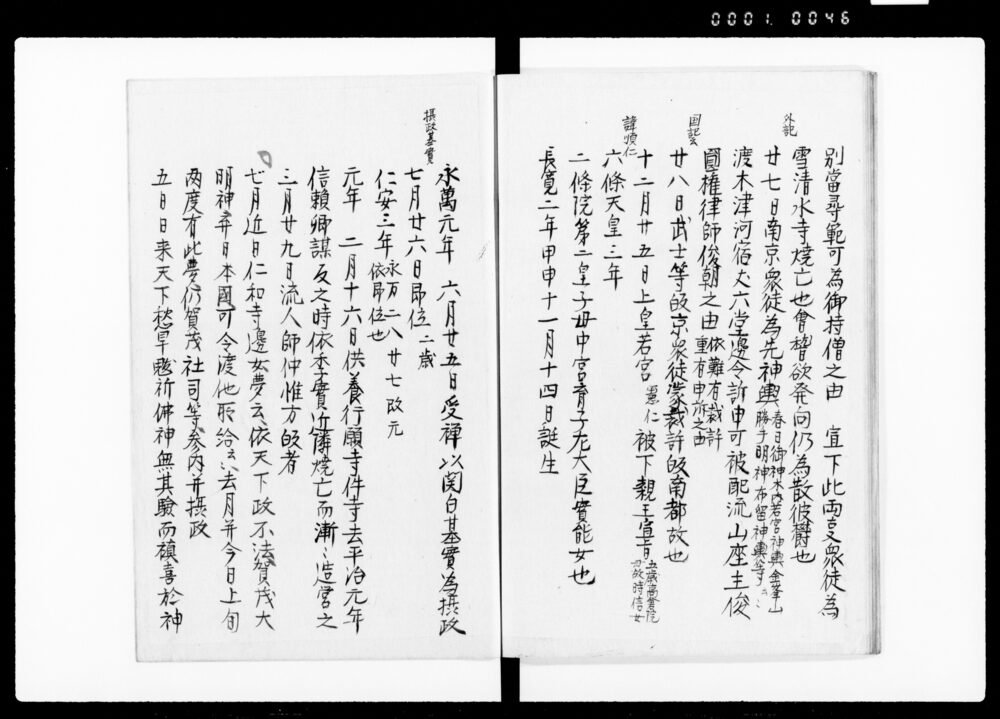 0001. 0046
別當尋範可為御持僧之由　宣下此両夏衆徒為
外記
雪清水寺焼亡也會稽欲発向仍為散彼欝也
廿七日南京衆徒為先神輿春日御神木丹若宮神輿金峯山
勝手明神布留神輿等云々
渡木津河宿丈六堂邊令訴申可被配流山座主俊
圓權律師俊朝之由依難有裁許
重有申所之由
国記云
廿八日武士等皈京衆徒蒙裁許皈南都故也
十二月廿五日上皇若宮憲仁被下親王宣旨五歳
故時信女
諱順仁
六條天皇三年
二條院第二皇子母中宮育子左大臣實能女也
長寛二年甲申十一月十四日誕生
攝政基實
永萬元年　六月廿五日受禅以関白基實為摂政
七月廿六日即位二歳
仁安三年永万二八廿七改元
依即位也
元年　二月十六日供養行願寺件寺去平治元年
信頼卿謀反之時依季實近隣焼亡而漸〻造営之
三月廿九日流人師仲惟方皈着
七月近日仁和寺邊女夢云依天下政不法賀茂大
明神弃日本國可令渡他所給云〻去月并今日上旬
両度有此夢仍賀茂社司等参内并摂政
五日日来天下愁旱魃祈佛神無其驗而禱喜於神